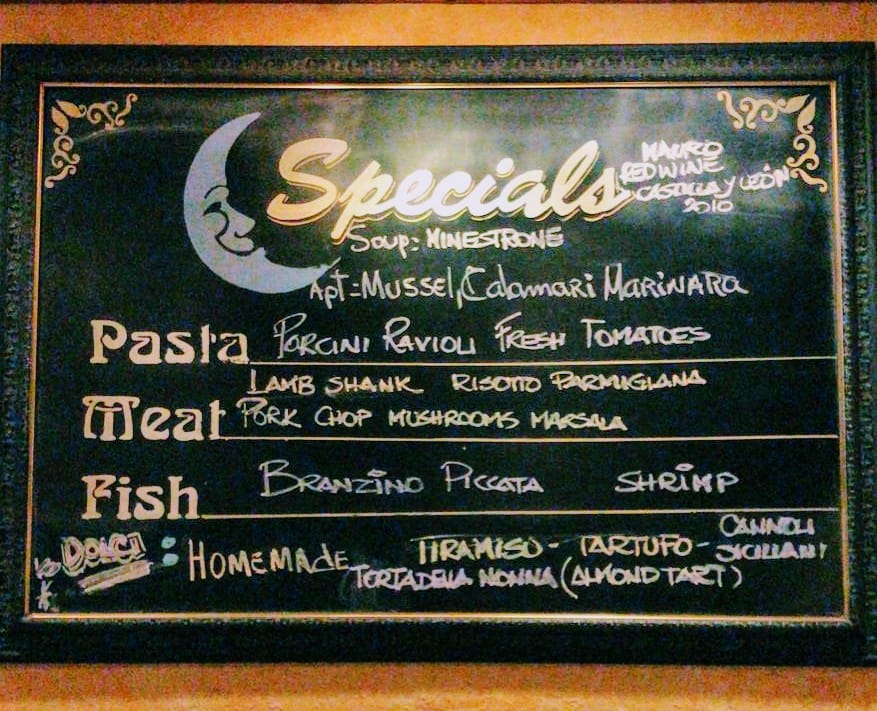 Specials
MAURO
RED WINE
CASTILLA Y LEÓN
2010
Soup: MINESTRONE
Apt: Mussel, Calamari Marinara
Pasta PORCINI RAVIOLI FRESH TOMATOES
LAMB SHANK RISOTTO PARMIGIANA
Meat PORK CHOP MUSHROOMS MARSALA
Fish BRANZINO PICCATA SHRIMP
DOLCI : HOMEMADE TIRAMISU - TARTUFO - CANNOLI SICILIANI
TORTA DELLA NONNA (ALMOND TART)